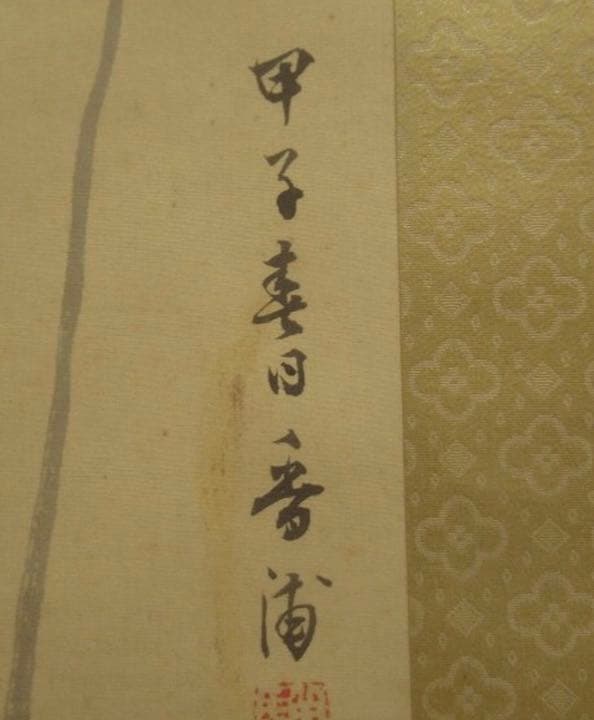 甲子春日香浦